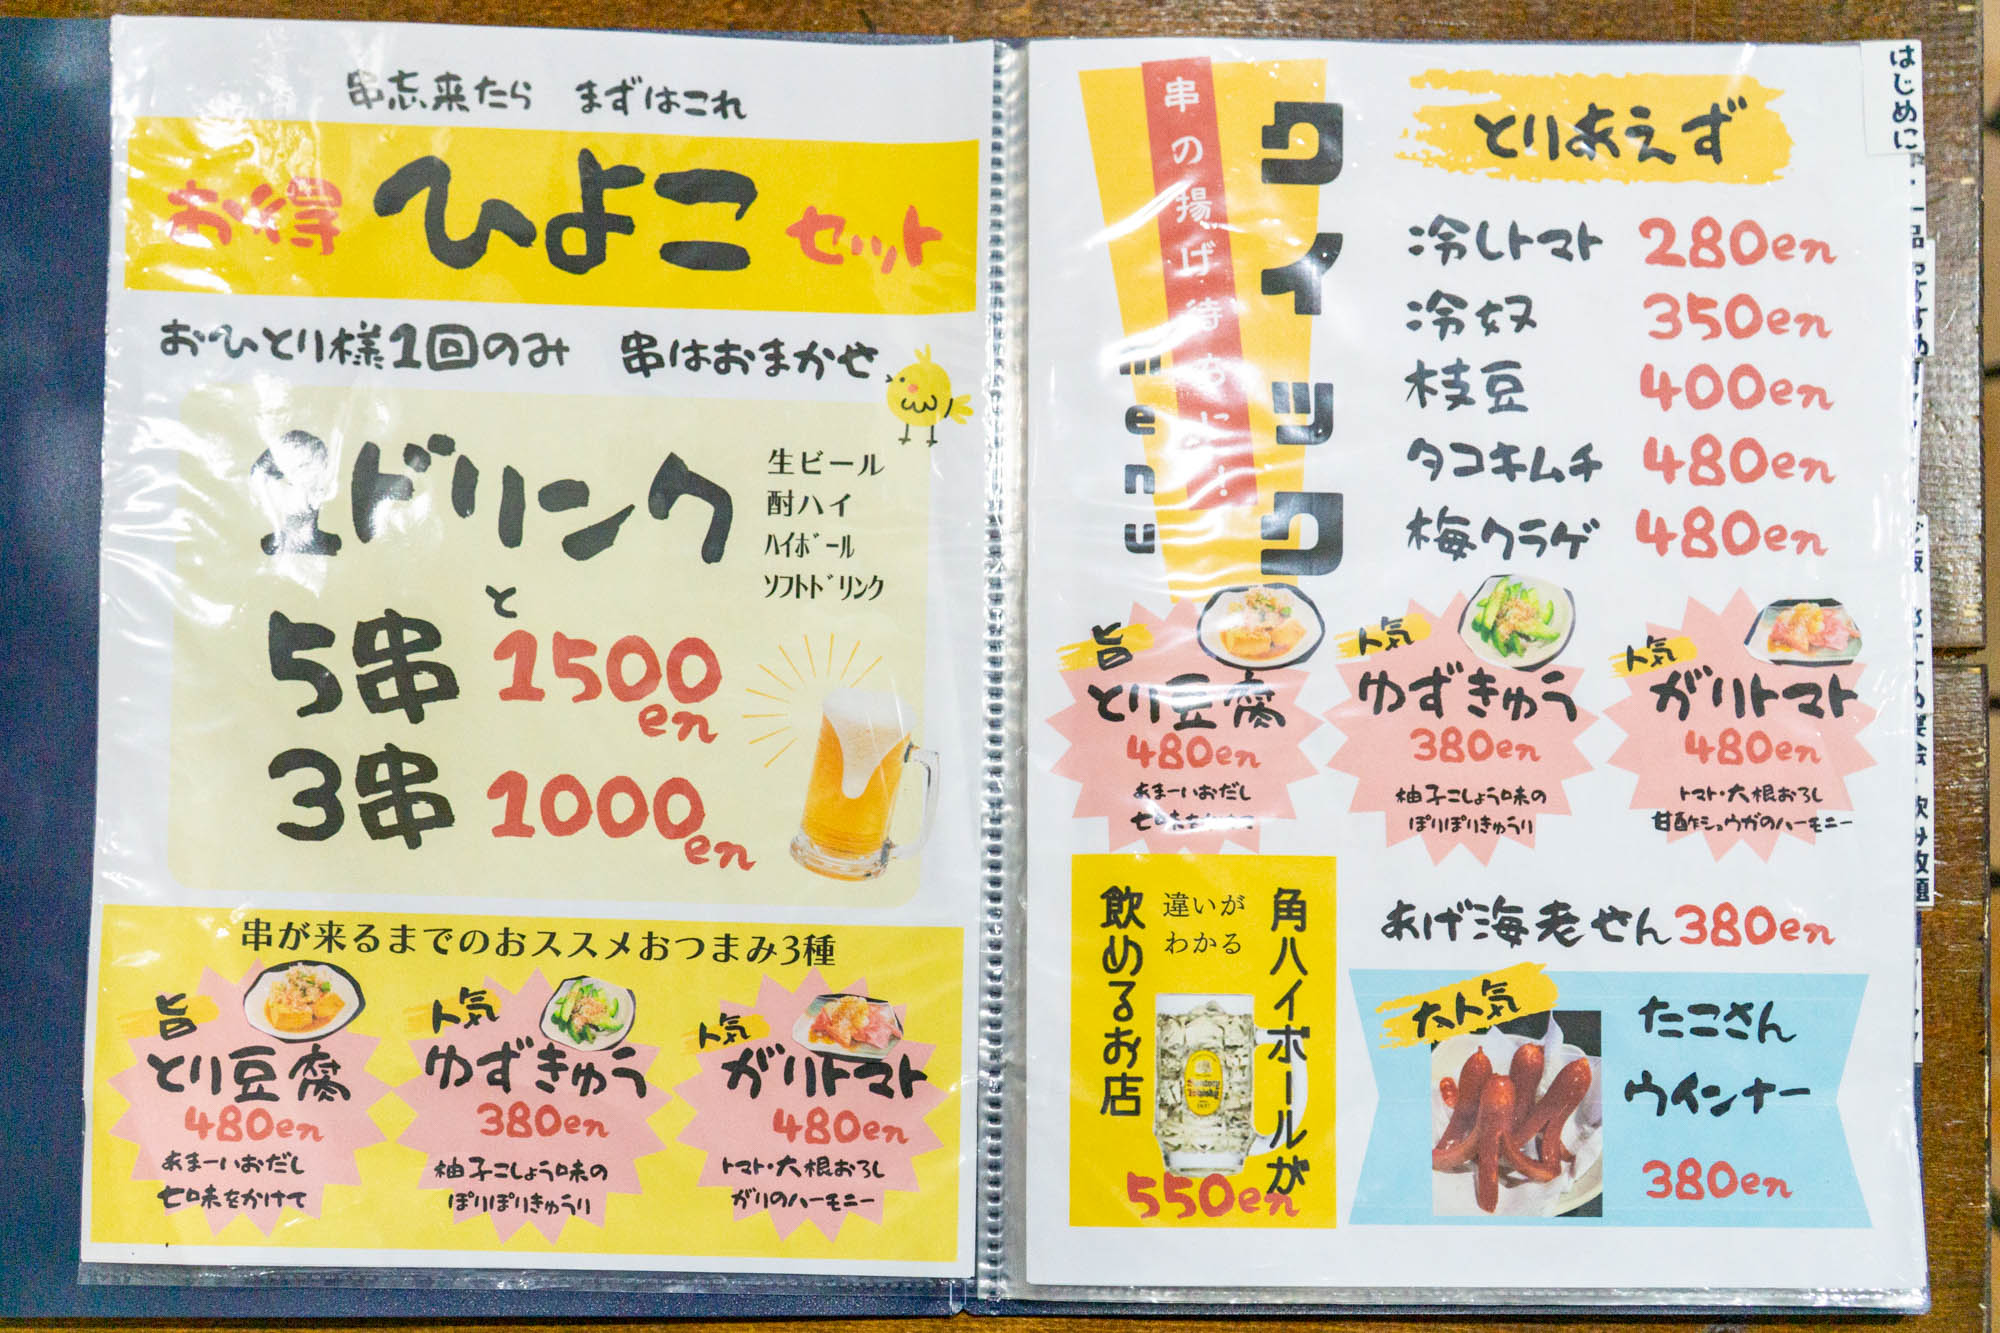 串忘来たら まずはこれ
お得 ひよこ セット
おひとり様1回のみ 串はおまかせ
1ドリンク
生ビール
酎ハイ
ハイボール
ソフトドリンク
と
5串 1500en
3串 1000en
串が来るまでのおススメおつまみ3種
旨
とり豆腐
480en
あまーいおだし
七味をかけて
人気
ゆずきゅう
380en
柚子こしょう味の
ぽりぽりきゅうり
人気
ガリトマト
480en
トマト・大根おろし
ガリのハーモニー
串の揚げ待ちに!
クイック
menu
とりあえず
冷しトマト 280en
冷奴 350en
枝豆 400en
タコキムチ 480en
梅クラゲ 480en
旨
とり豆腐
480en
あまーいおだし
七味をかけて
人気
ゆずきゅう
380en
柚子こしょう味の
ぽりぽりきゅうり
人気
ガリトマト
480en
トマト・大根おろし
甘酢ショウガのハーモニー
角ハイボールが
違いが
わかる
飲めるお店
550en
あげ海老せん 380en
大人気
たこさん
ウインナー
380en
はじめに